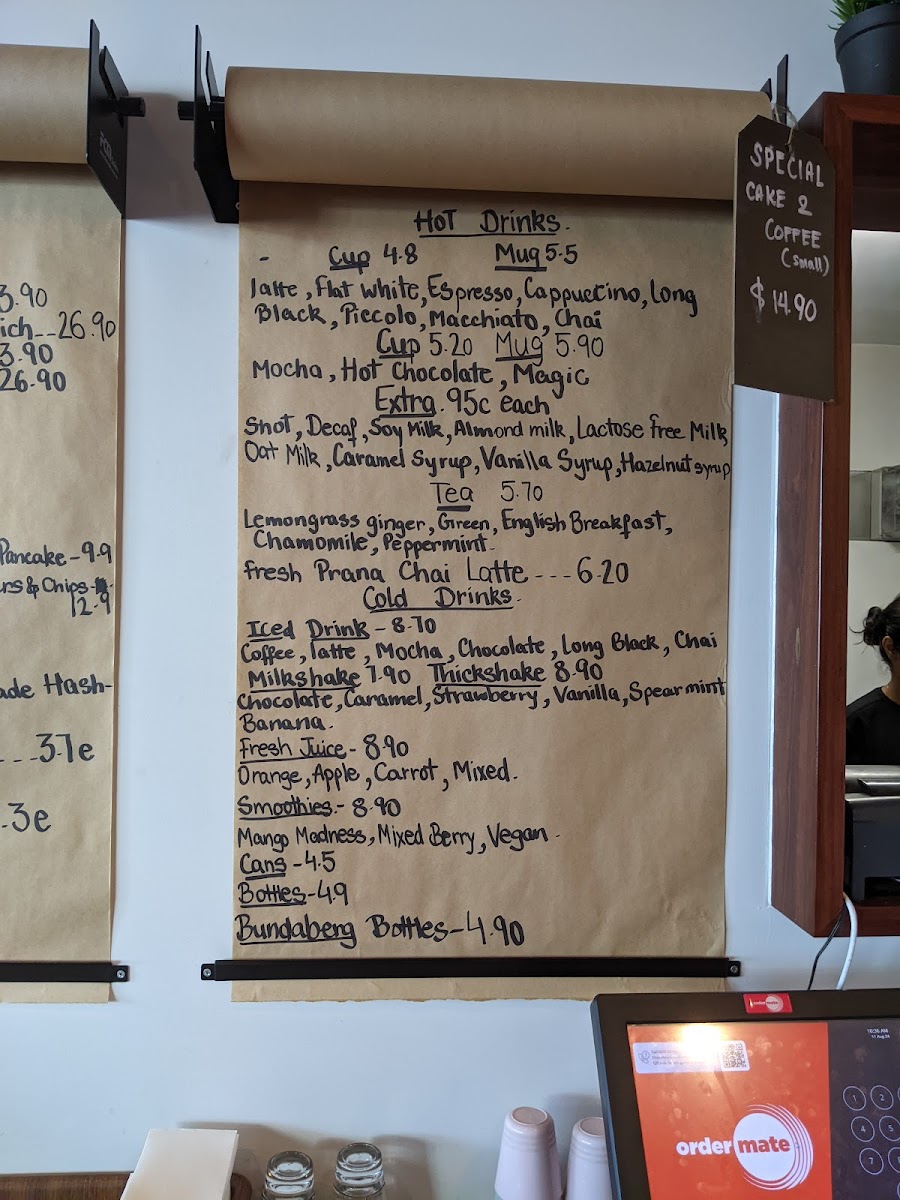 3.90
ich--26.90
3.90
26.90
Pancake-9.9
rs & Chips-
12.9
ade Hash-
...37e
.3e
Hot Drinks.
- Cup 4.8 Mug 5.5
latte, Flat white, Espresso, Cappuccino, Long
Black, Piccolo, Macchiato, Chai
Cup 5.20 Mug 5.90
Mocha, Hot Chocolate, Magic
Extra. 95c each
Shot, Decaf, Soy Milk, Almond milk, Lactose free Milk
Oat Milk, Caramel Syrup, Vanilla Syrup, Hazelnut syrup
Tea 5.70
Lemongrass ginger, Green, English Breakfast,
Chamomile, Peppermint.
fresh Prana Chai Latte --- 6.20
Cold Drinks.
Iced Drink - 8.70
Coffee, latte, Mocha, Chocolate, Long Black, Chai
Milkshake 7.90 Thickshake 8.90
Chocolate, Caramel, Strawberry, Vanilla, Spearmint
Banana.
Fresh Juice - 8.90
Orange, Apple, Carrot, Mixed.
Smoothies.- 8.90
Mango Madness, Mixed Berry, Vegan.
Cans - 4.5
Bottles - 4.9
Bundaberg Bottles - 4.90
SPECIAL
CAKE &
COFFEE
(small)
$ 14.90
ordermate
10:36 AM
11 Aug 24
order mate
1 2
4 5
7 8